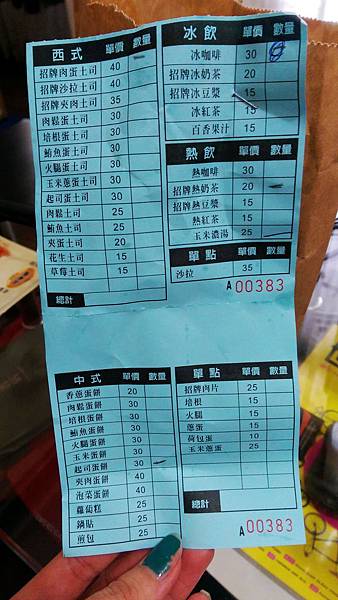 西式 單價 數量
招牌肉蛋土司 40
招牌沙拉土司 40
招牌夾肉土司 35
肉鬆蛋土司 30
培根蛋土司 30
鮪魚蛋土司 30
火腿蛋土司 30
玉米蔥蛋土司 30
起司蛋土司 30
肉鬆土司 25
鮪魚土司 25
夾蛋土司 20
花生土司 15
草莓土司 15
總計
冰飲 單價 數量
冰咖啡 30
招牌冰奶茶 20
招牌冰豆漿 15
冰紅茶 15
百香果汁 15
熱飲 單價 數量
熱咖啡 30
招牌熱奶茶 20
招牌熱豆漿 15
熱紅茶 15
玉米濃湯 25
單點 單價 數量
沙拉 35
A 00383
中式 單價 數量
香蔥蛋餅 20
肉鬆蛋餅 30
培根蛋餅 30
鮪魚蛋餅 30
火腿蛋餅 30
玉米蛋餅 30
起司蛋餅 30
夾肉蛋餅 40
泡菜蛋餅 40
蘿蔔糕 25
鍋貼 25
煎包 25
單點 單價 數量
招牌肉片 25
培根 15
火腿 15
蔥蛋 15
荷包蛋 10
玉米蔥蛋 25
總計
A 00383